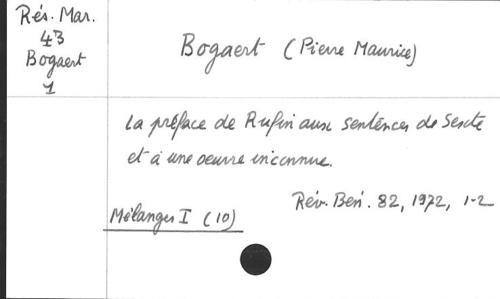 Rés. Mar.
43
Bogaert
1
Bogaert (Pierre Maurice)
La préface de Rufin aux Sentences de Sexte
et à une oeuvre inconnue.
Rév. Bén. 82, 1972, 1-2
Mélanges I (10)